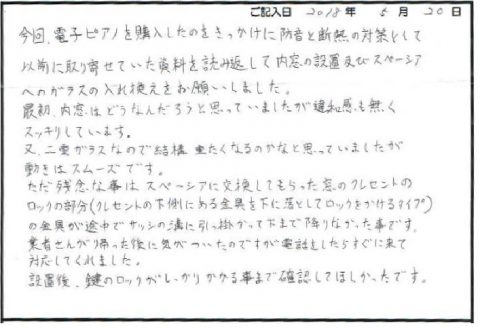 ご記入日 2018年 5月 20日
今回、電子ピアノを購入したのをきっかけに防音と断熱の対策として
以前に取り寄せていた資料を読み返して内窓の設置及びスペーシア
へのガラスの入れ換えをお願いしました。
最初、内窓はどうなんだろうと思っていましたが違和感も無く
スッキリしています。
又、二重ガラスなので結構重たくなるのかなと思っていましたが
動きはスムーズです。
ただ残念な事はスペーシアに交換してもらった窓のクレセントの
ロックの部分(クレセントの下側にある金具を下に落としてロックをかけるタイプ)
の金具が途中でサッシの溝に引っ掛かって下まで降りなかった事です。
業者さんが帰った後に気がついたのですが電話をしたらすぐに来て
対応してくれました。
設置後、鍵のロックがしっかりかかる事まで確認してほしかったです。